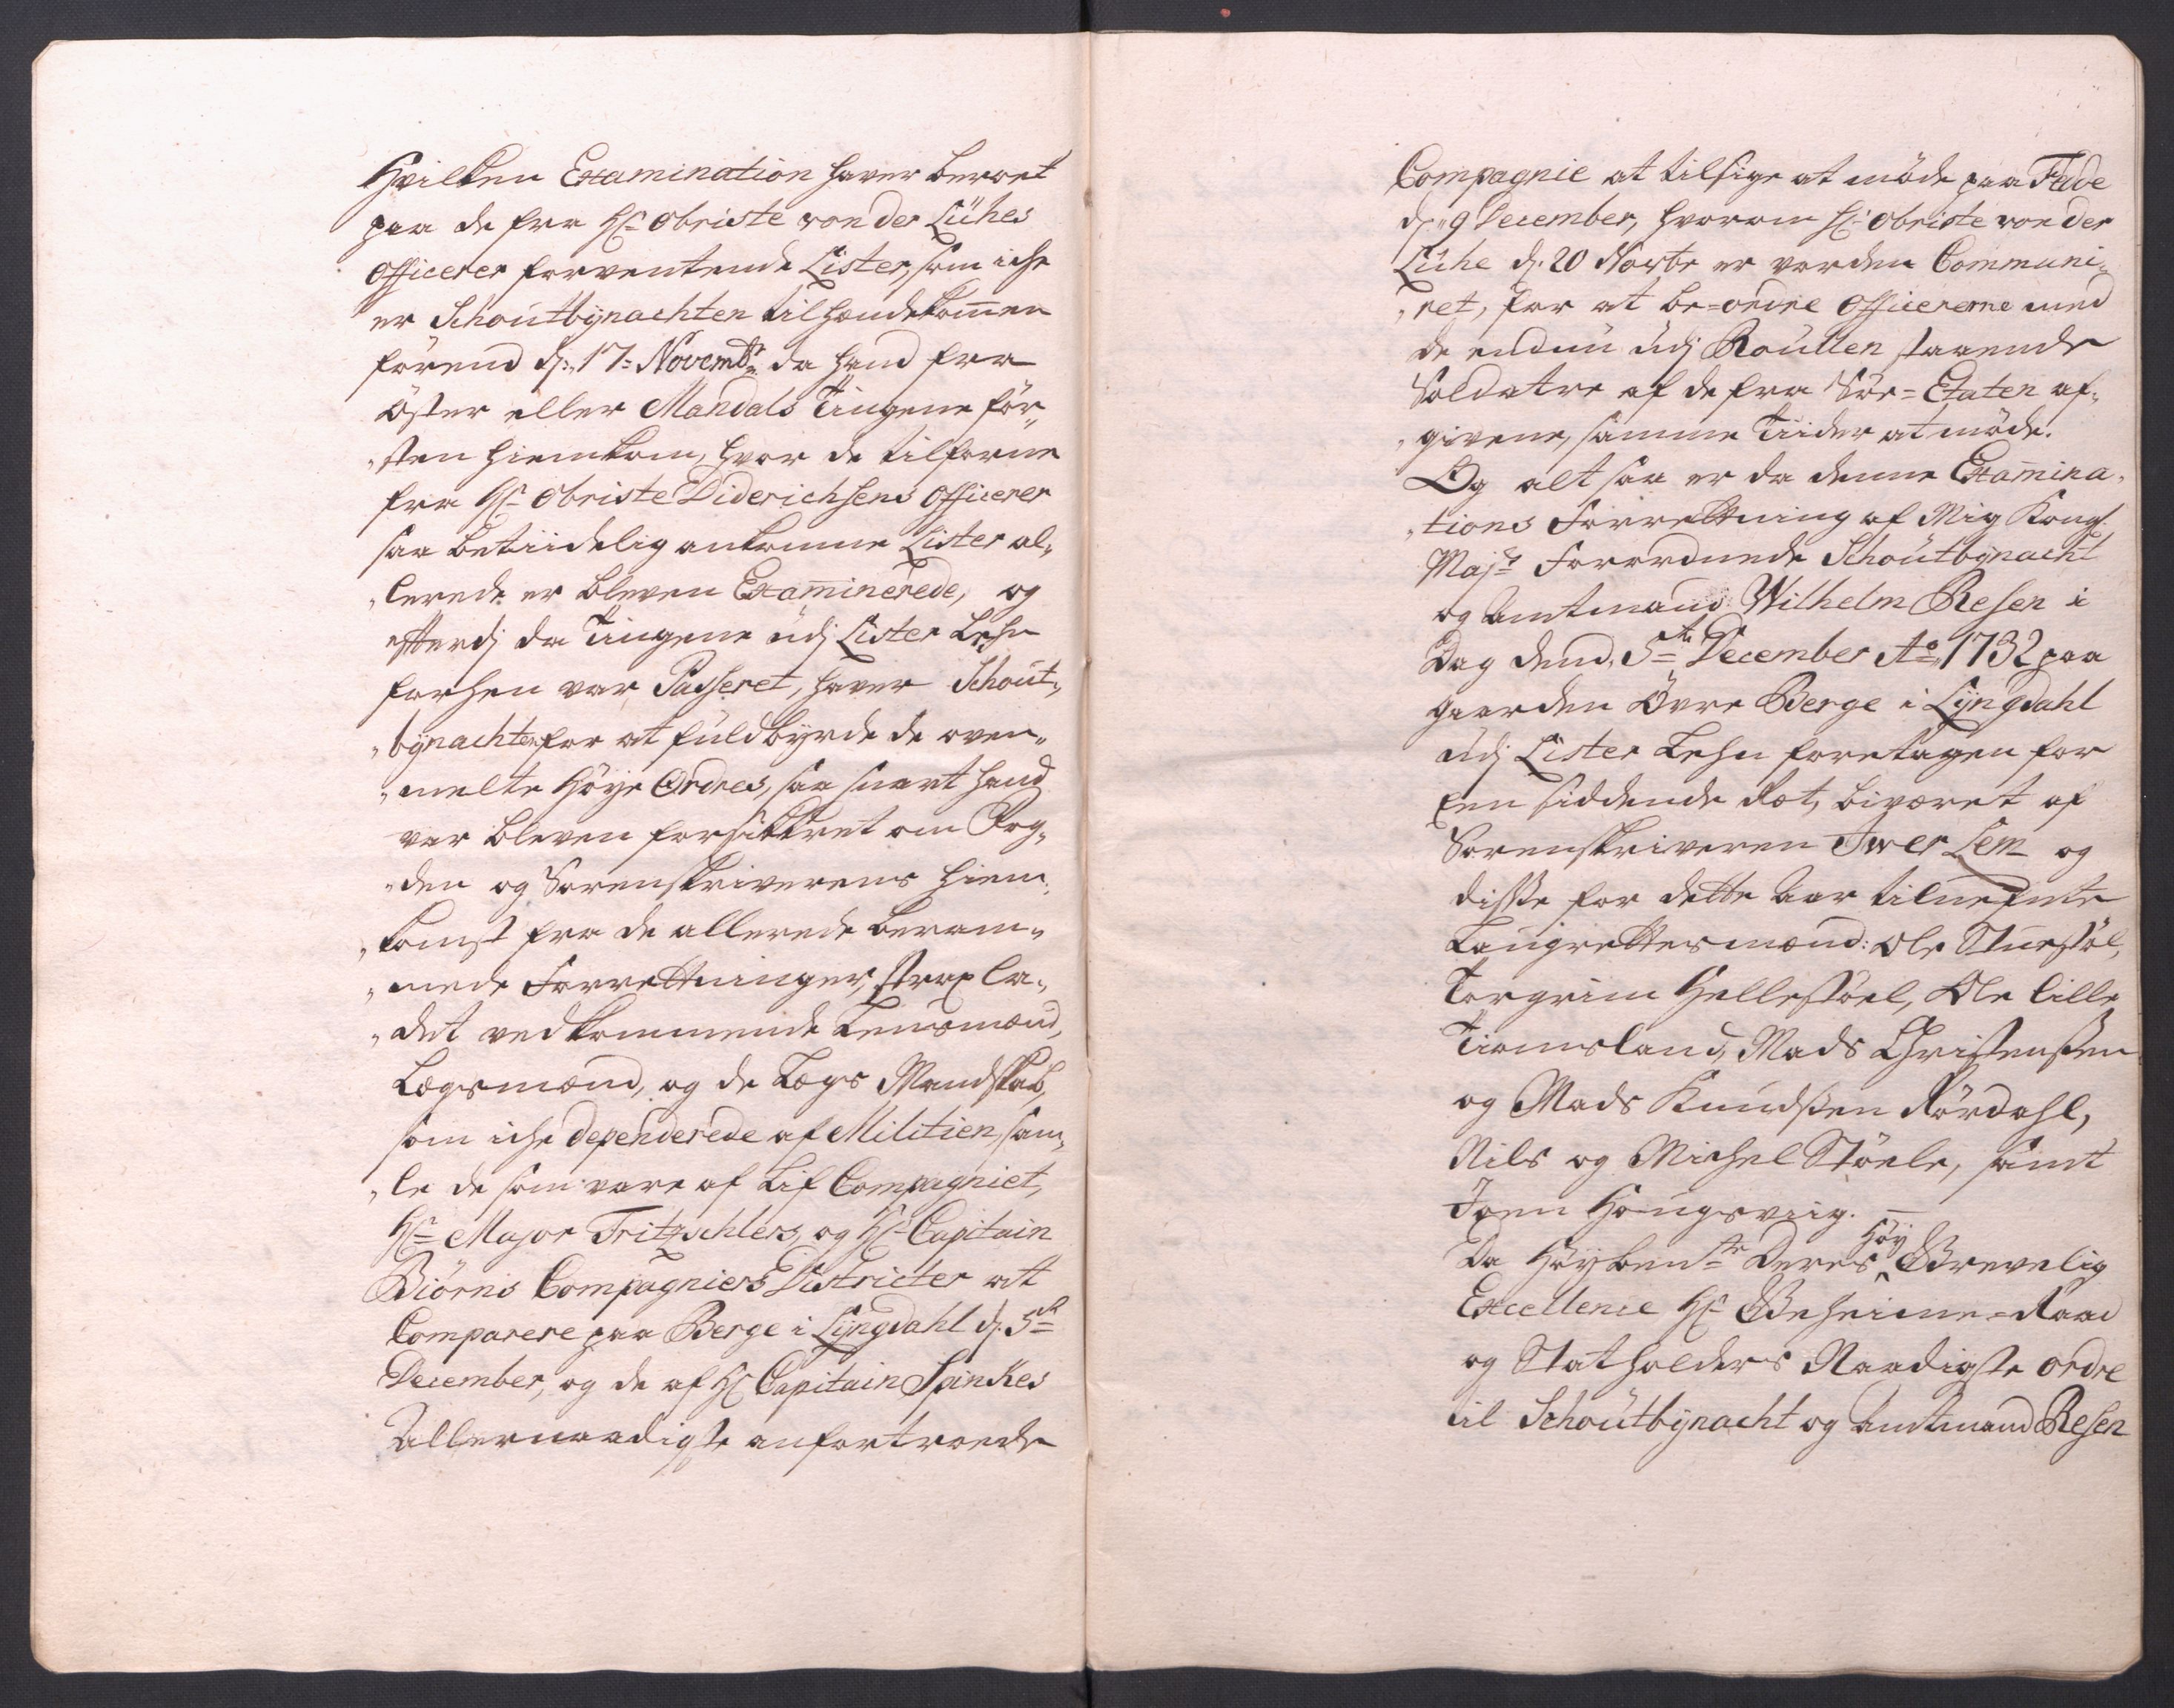 Hvilken Examination haver beroet
paa de fra Hr. Obriste von der Lühes
Officerer forventende Lister, som iche
er Schoutbynachten tilhændekommen
førend d: 17: Novembr. da hand fra
Øster eller Mandals Tingene før„
„sten hiemkom, hvor de tilforne
fra Hr. Obriste Diderichsens Officerer
saa betiidelig ankomne Lister al„
„lerede er bleven Examinerede, og
efterdj da Tingene udj Lister Lehn
forhen var Passeret, haver Schout„
„bynachten for at fuldbyrde de oven„
„melte Høye Ordres, saa snart hand
var bleven forsikkret om Fog„
„den og Sorenskriverens hiem„
„komst fra de allerede beram„
„mede Forrettninger, strax la„
„det vedkommende Lensmænd,
Lægsmænd, og de Lægs Mandskab,
som iche dependerede af Militien, sam„
„le de som vare af Lif Compagniet,
Hr. Major Fritzschlers, og Hr. Capitain
Biörns Compagniers Districter at
Comparere paa Berge i Lyngdahl d. 5te
December, og de af Hr. Capitain Spinkes
Allernaadigste anfortroede
Compagnie at tilsige at møde paa Fede
d. 9 December, hvorom Hr. Obriste von der
Lühe d. 20 Novbr er vorden Communi„
„ret, for at be=ordre Officererne med
de endnu udj Roullen staaende
Soldatre af de fra Søe=Etaten af„
„givene, samme Tiider at møde.
Og alt saa er da denne Examina„
„tions Forrettning af Mig Kongl.
Majts. Forordnede Schoutbynacht
og Amtmand Wilhelm Resen i
Dag dend 5te December Ao. 1732 paa
gaarden Øvre Berge i Lyngdahl
udj Lister Lehn foretagen for
Een siddende Ræt, biværet af
Sorenskriveren Iwer Lem og
disse for dette Aar tilnefnte
Laugrettesmænd: Ole Stuestøl,
Torgrim Hellestöel, Ole lille
Tiomsland, Mads Christensen
og Mads Knudsen Rørdahl,
Nils og Michel Støele, samt
Joen Houngsviig. —
Da Høybente. Deres Høy Grevelig
Excellence Hr. Geheime=Raad
og Statholders Naadigste ordre
til Schoutbynacht og Amtmand Resen